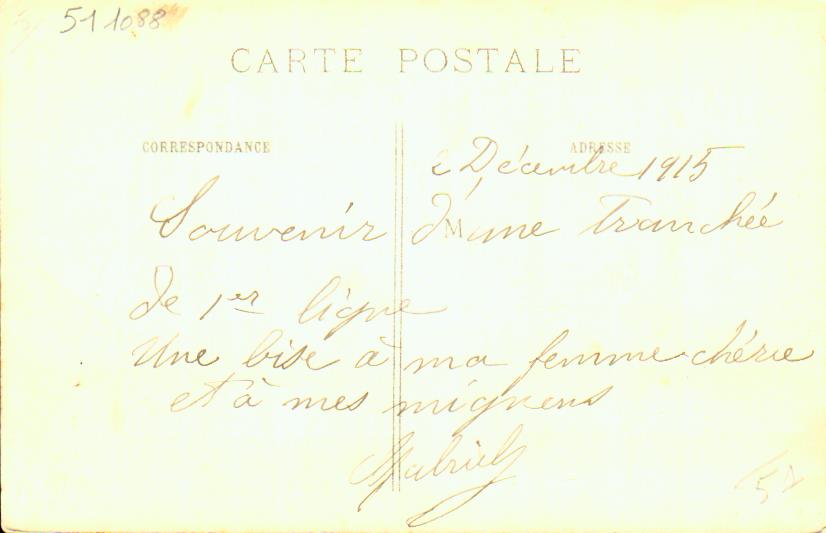 511088
CARTE POSTALE
CORRESPONDANCE
ADRESSE
2 Décembre 1915
M
Souvenir d'une Tranchée
de 1er ligne
Une bise à ma femme chérie
et à mes mignons
Gabriel